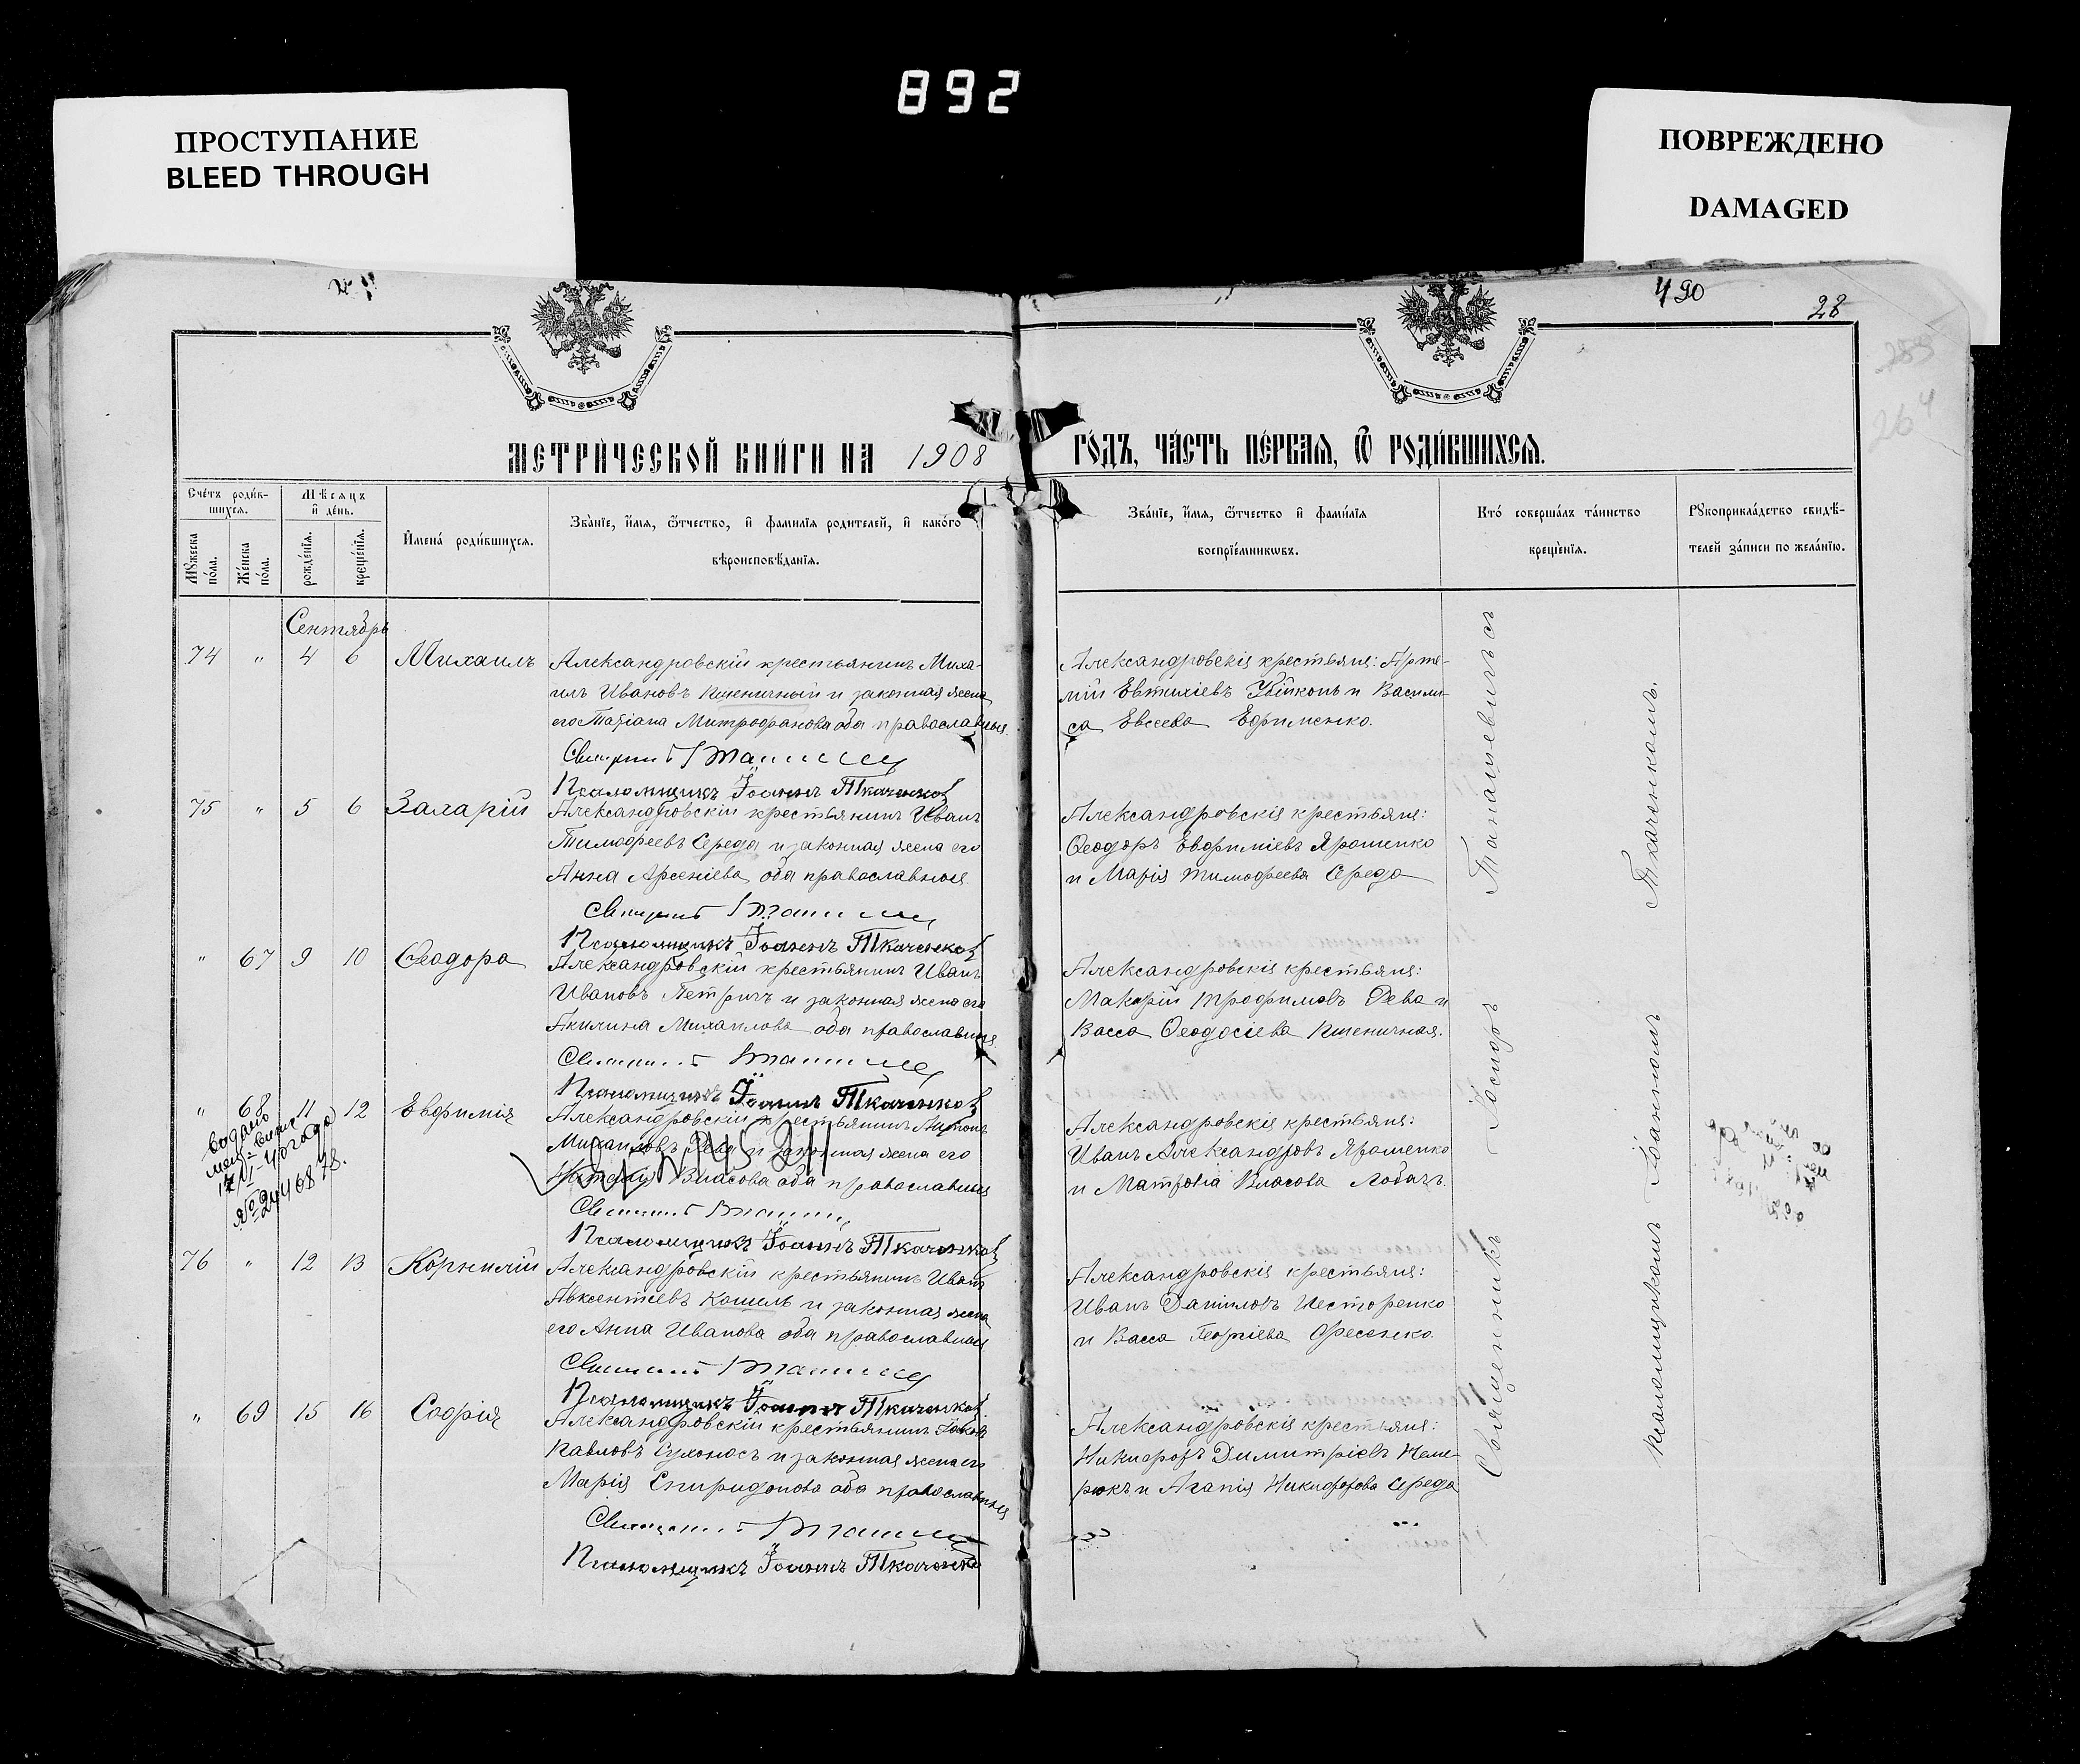 892
ПРОСТУПАНИЕ
BLEED THROUGH
ПОВРЕЖДЕНО
DAMAGED
490
28
264
МЕТРИЧЕСКОЙ КНИГИ НА 1908 ГОДЪ, ЧАСТЬ ПЕРВАЯ, Ѿ РОДИВШИХСЯ.
Счетъ родив-
шихся.
Мужеска
пола.
Женска
пола.
Мѣсяцъ
и день.
рожденїя.
крещенїя.
Имена родившихся.
Званїе, имя, ѿтчество, и фамилїя родителей, и какого
вѣроисповѣданїя.
Званїе, имя, ѿтчество и фамилїя
воспрїемниковъ.
Кто совершалъ таинство
крещенїя.
Рукоприкладство свидѣ-
телей записи по желанїю.
Сентябрь
74 " 4 6 Михаилъ
Александровскій крестьянинъ Миха-
илъ Ивановъ Пшеничный и законная жена
его Татіана Митрофанова оба православные
Псаломщикъ Іоаннъ Ткаченковъ
Александровскіе крестьяне: Арте-
мій Евтихіевъ и Васили-
са Евсеева Ефименко.
75 " 5 6
Александровскій крестьянинъ Иванъ
Тимофеевъ Середа и законная жена его
Анна Арсеніева оба православные
Псаломщикъ Іоаннъ Ткаченковъ
Александровскіе крестьяне:
Ѳеодоръ Евфиміевъ Ярошенко
и Марія Тимофеева Середа
" 67 9 10 Ѳеодора
Александровскій крестьянинъ Иванъ
Ивановъ Петричъ и законная жена его
Акилина Михаилова оба православные
Псаломщикъ Іоаннъ Ткаченковъ
Александровскіе крестьяне:
Макарій Трофимовъ Рева и
Васса Ѳеодосіева Пшеничная.
" 68 11 12 Евфимія
выдано
1940 года
№ 2446878.
Александровскій крестьянинъ Антонъ
Михаиловъ Рева и законная жена его
Власова оба православные
Псаломщикъ Іоаннъ Ткаченковъ
Александровскіе крестьяне:
Иванъ Александровъ Ярошенко
и Матрона Власова Лобачъ.
76 " 12 13 Корнилій
Александровскій крестьянинъ Иванъ
Авксентіевъ Кошель и законная жена
его Анна Иванова оба православные
Псаломщикъ Іоаннъ Ткаченковъ
Александровскіе крестьяне:
Иванъ Даниловъ Несторенко
и Васса Георгіева Фесенко.
" 69 15 16 Софія
Александровскій крестьянинъ Іаковъ
Павловъ Сухоносъ и законная жена его
Марія Спиридонова оба православные
Псаломщикъ Іоаннъ Ткаченковъ
Александровскіе крестьяне:
Никифоръ Димитріевъ Неме-
рюкъ и Агапія Никифорова Середа
Священникъ Іосифъ Танашевичъ съ
псаломщикомъ Іоанномъ Ткаченкомъ.